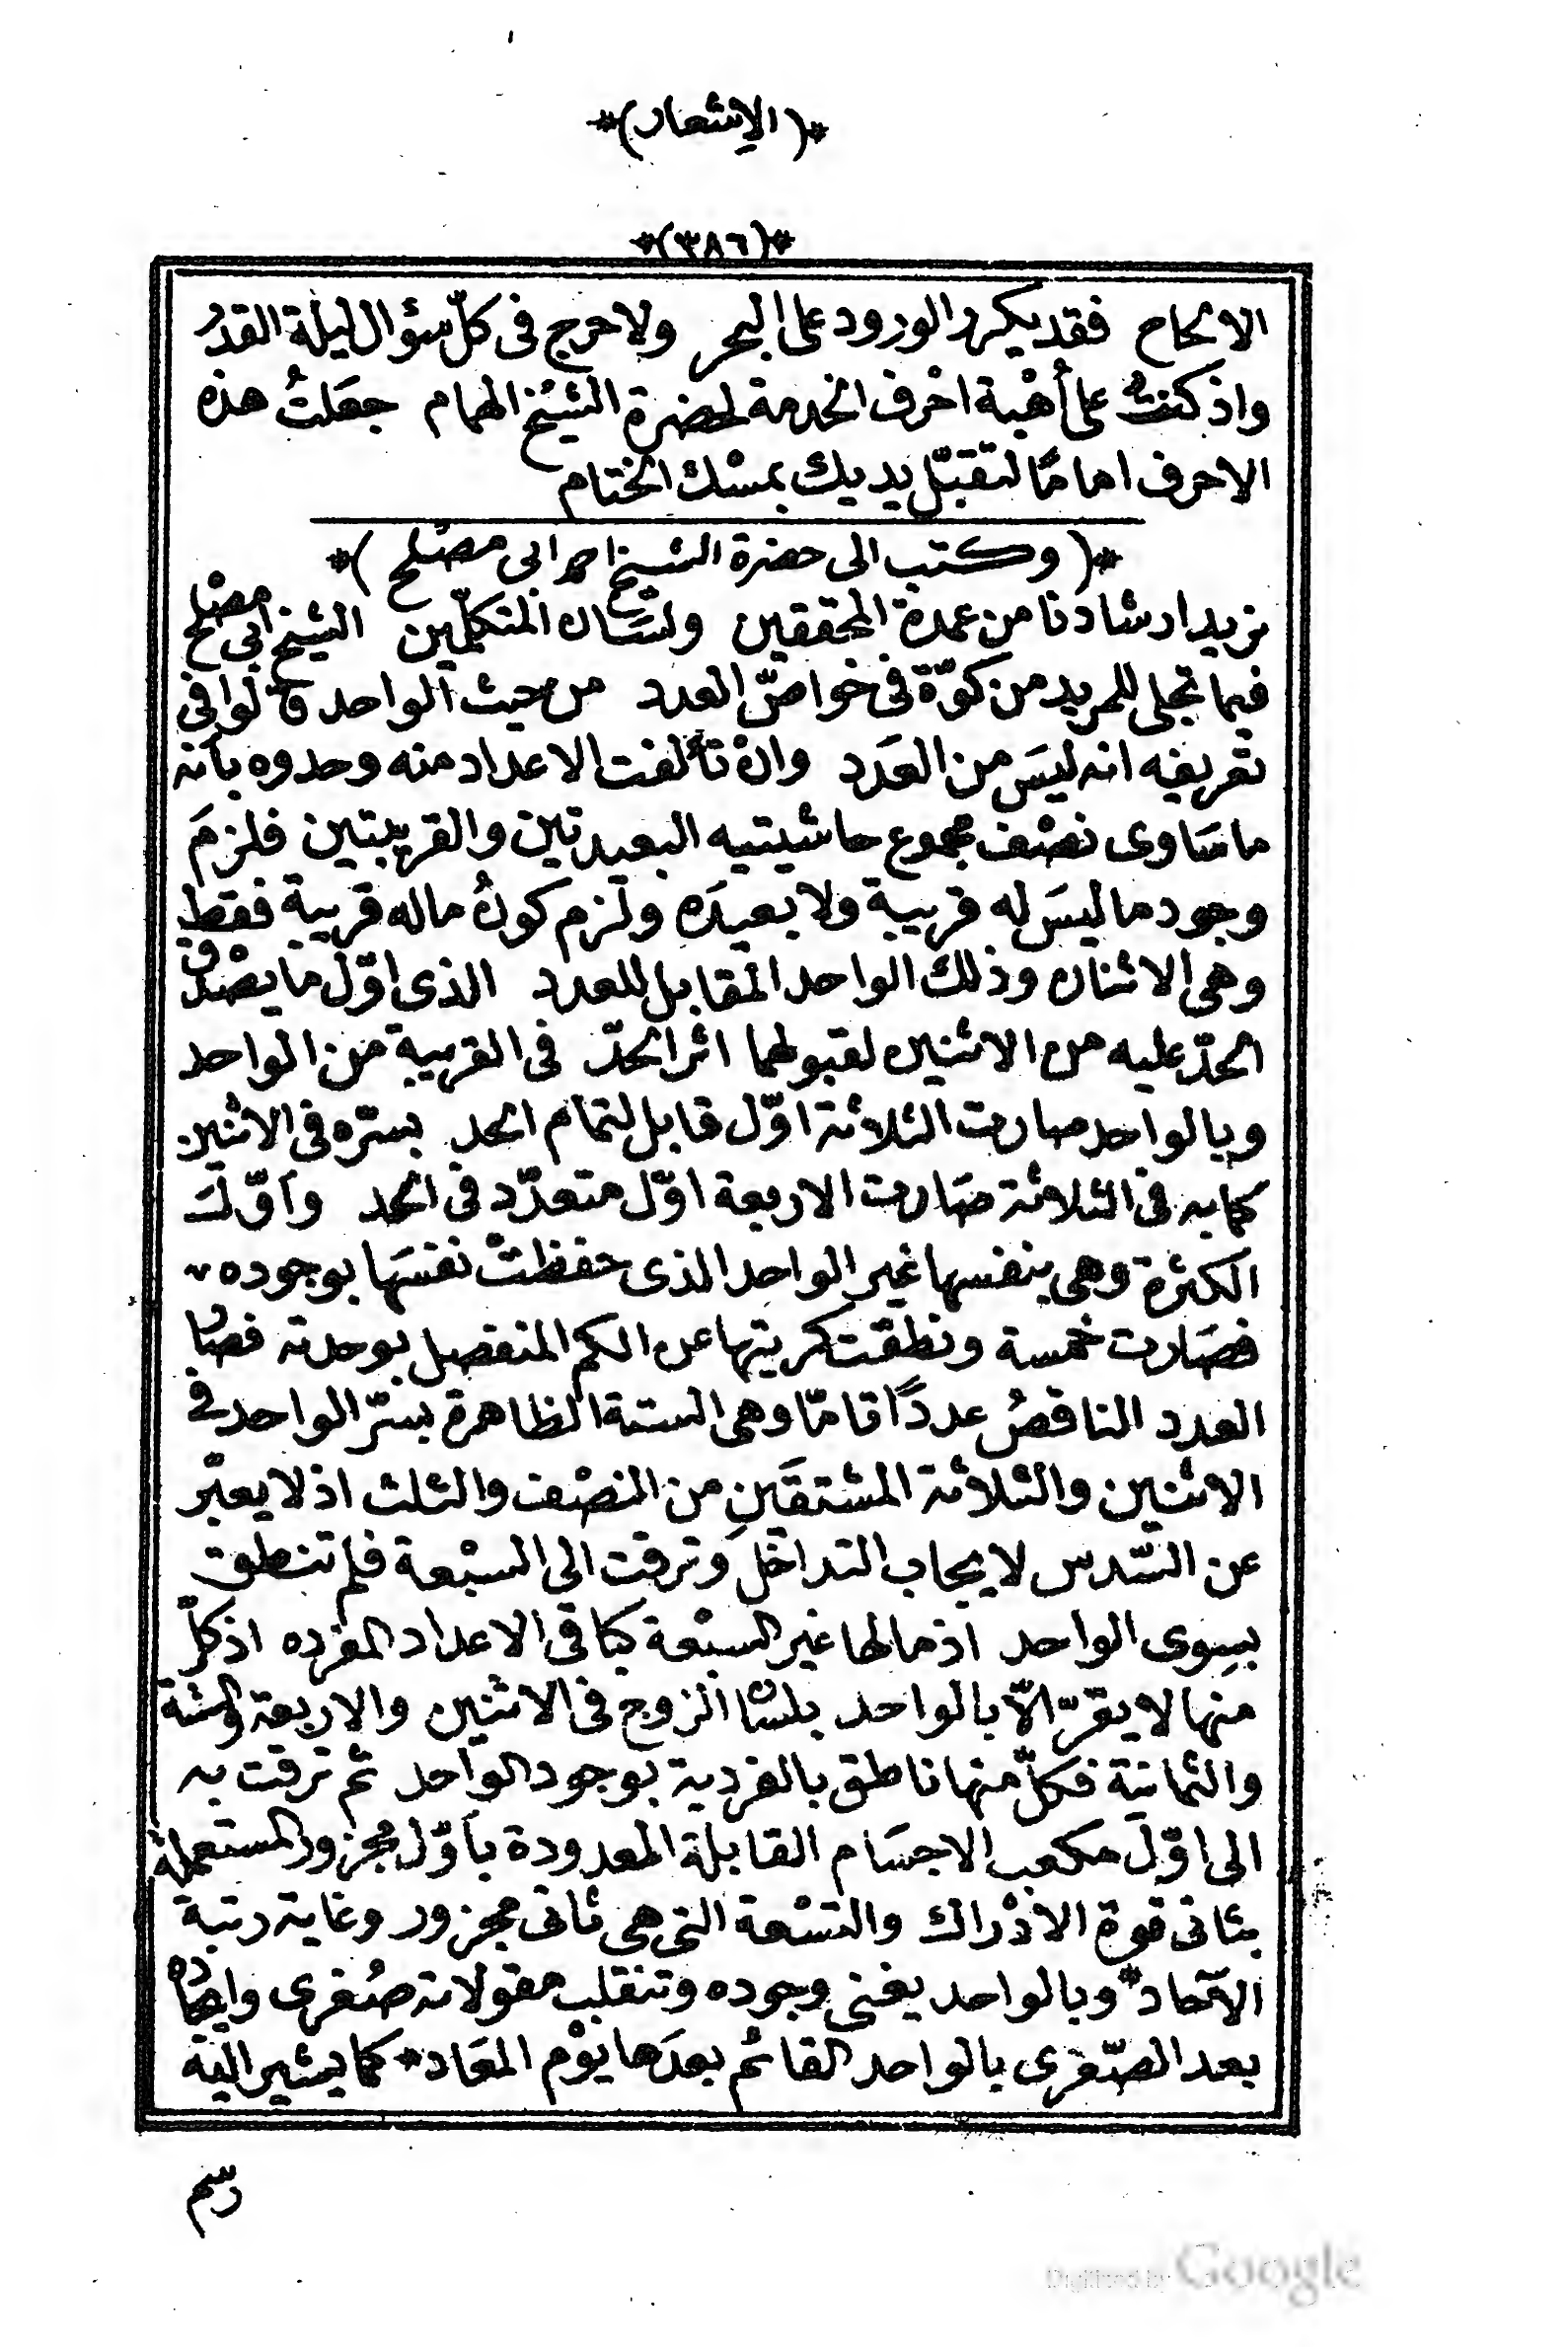 *(الاشعار)*
*(٣٨٦)*
الالحاح فقد يكرر الورود على البحر ولا حرج فى كلّ سؤال ليلة القدْر
واذ كنتُ على أهْبة اخرف الخدمة لحضرة الشيْخ الهمام جعَلتُ هذه
الاحرف امامًا لتقبّل يديك بمسْك الختام
*(وكتب الى حضرة الشيخ احمد ابى مصْلح)*
نريد ارشادنا من عمدة المحققين ولسَان المتكلّمين الشيخ ابى مصْلح
فيما تجلى للمريد من كوّة فى خواصّ العدد من حيث الواحد قالوا فى
تعريفه انه ليسَ من العَدد وانْ تألفت الاعداد منه وحدوه بأنه
ما سَاوى نصْف مجموع حاشيتيه البعيدتين والقريبتين فلزمَ
وجود ما ليسَ له قريبة ولا بعيدَه ولزم كونُ ماله قريبة فقط
وهى الاثنان وذلك الواحد المقابل للعدد الذى اوّل ما يصْدق
الحدّ عليه من الاثنين لقبولهما اثر الحدّ فى القريبة من الواحد
وبالواحد صارت الثلاثة اوّل قابل لتمام الحد بسرّه فى الاثنين
كما به فى الثلاثة صَارت الاربعة اوّل متعدّد فى الحد وأوّلَ
الكثرة وهى بنفسها غير الواحد الذى حفظتْ نفسَها بوجوده
فصَارت خمسة ونطقت كريتها عن الكم المنفصل بوحدته فصَار
العدد الناقصُ عددًا تامّا وهى الستة الظاهرة بسرّ الواحد فى
الاثنين والثلاثة المشتقَينِ من النصْف والثلث اذ لا يعبّر
عن السّدس لايجاب التداخل وترقت الى السبْعة فلم تنطق
بسِوى الواحد اذ مالها غير السبْعة كباقى الاعداد المفرده اذ كلّ
منها لا يقرّ الّا بالواحد بلسَان الزوج فى الاثنين والاربعة والستة
والثمانية فكلّ منها ناطق بالفردية بوجود الواحد ثم ترقت به
الى اوّل مكعب الاجسَام القابلة المعدودة بأوّل مجزور المستعملة
بثانى قوة الادْراك والتسْعة التى هى ثانى مجزور وغاية رتبة
الآحاد وبالواحد يفنى وجوده وتنقلب مقولاته صُغرى وايجاده
بعد الصّغرى بالواحد القائم بعدَها يوْم المعَاد * كما يشير اليْه
رسْم
Digitized by Google